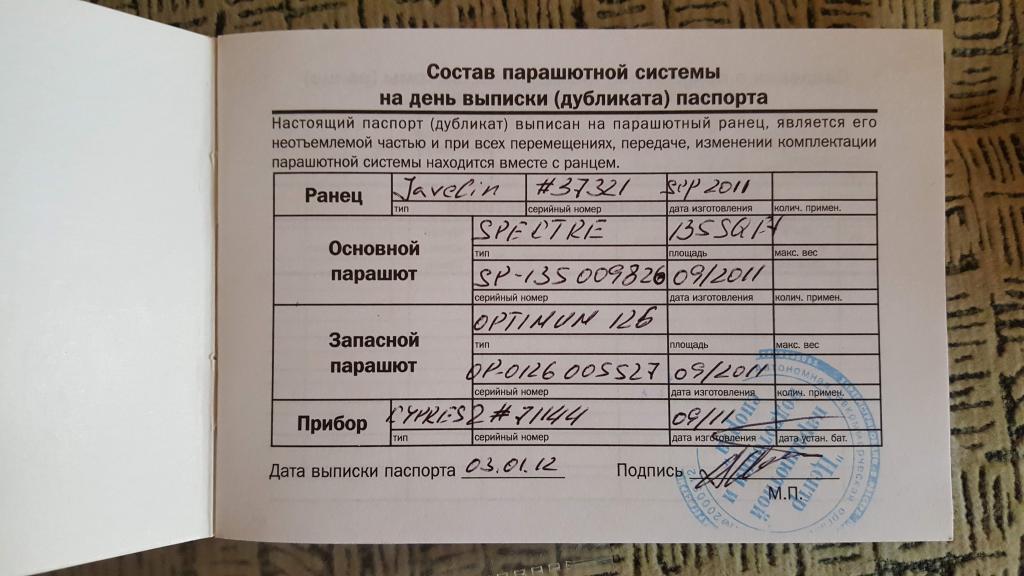 Состав парашютной системы
на день выписки (дубликата) паспорта
Настоящий паспорт (дубликат) выписан на парашютный ранец, является его
неотъемлемой частью и при всех перемещениях, передаче, изменении комплектации
парашютной системы находится вместе с ранцем.
Ранец Javelin #37321 SEP 2011
тип серийный номер дата изготовления колич. примен.
Основной парашют
SPECTRE 135SQFt
тип площадь макс. вес
SP-135 009826 09/2011
серийный номер дата изготовления колич. примен.
Запасной парашют
OPTIMUM 126
тип площадь макс. вес
OP-0126 005527 09/2011
серийный номер дата изготовления колич. примен.
Прибор CYPRES 2 #71144 09/11
тип серийный номер дата изготовления дата устан. бат.
Дата выписки паспорта 03.01.12 Подпись
М.П.